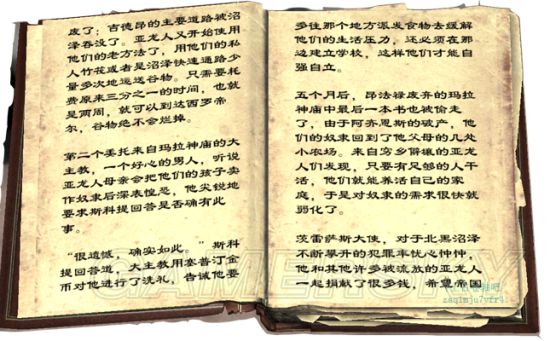 废了；吉德昂的主要道路被沼
泽吞没了。亚龙人又开始使用
他们的老方法了，用他们的私
人竹花或者是沼泽快速通路少
量多次地运送谷物。只需要耗
费原来三分之一的时间，也就
是两周，就可以到达西罗帝
尔，谷物绝不会烂掉。
第二个委托来自玛拉神庙的大
主教，一个好心的男人，听说
亚龙人母亲会把他们的孩子卖
作奴隶后深表惶恐，他尖锐地
要求斯科提回答是否确有此
事。
“很遗憾，确实如此。”斯科
提回答道，大主教用塞普汀金
币对他进行了洗礼，告诫他要
多往那个地方派发食物去缓解
他们的生活压力，还必须在那
边建立学校，这样他们才能自
强自立。
五个月后，昂法禄废弃的玛拉
神庙中最后一本书也被偷走
了，由于阿亦恩斯的破产，他
们的奴隶回到了他父母的几处
小农场。来自穷乡僻壤的亚龙
人们发现，只要有足够的人干
活，他们就能养活自己的家
庭，于是对奴隶的需求很快就
弱化了。
茨雷萨斯大使，对于北黑沼泽
不断攀升的犯罪率忧心忡忡，
他和其他许多被流放的亚龙人
一起捐献了很多钱，希望帝国
GAMERSKY
zaqimju7yfr4